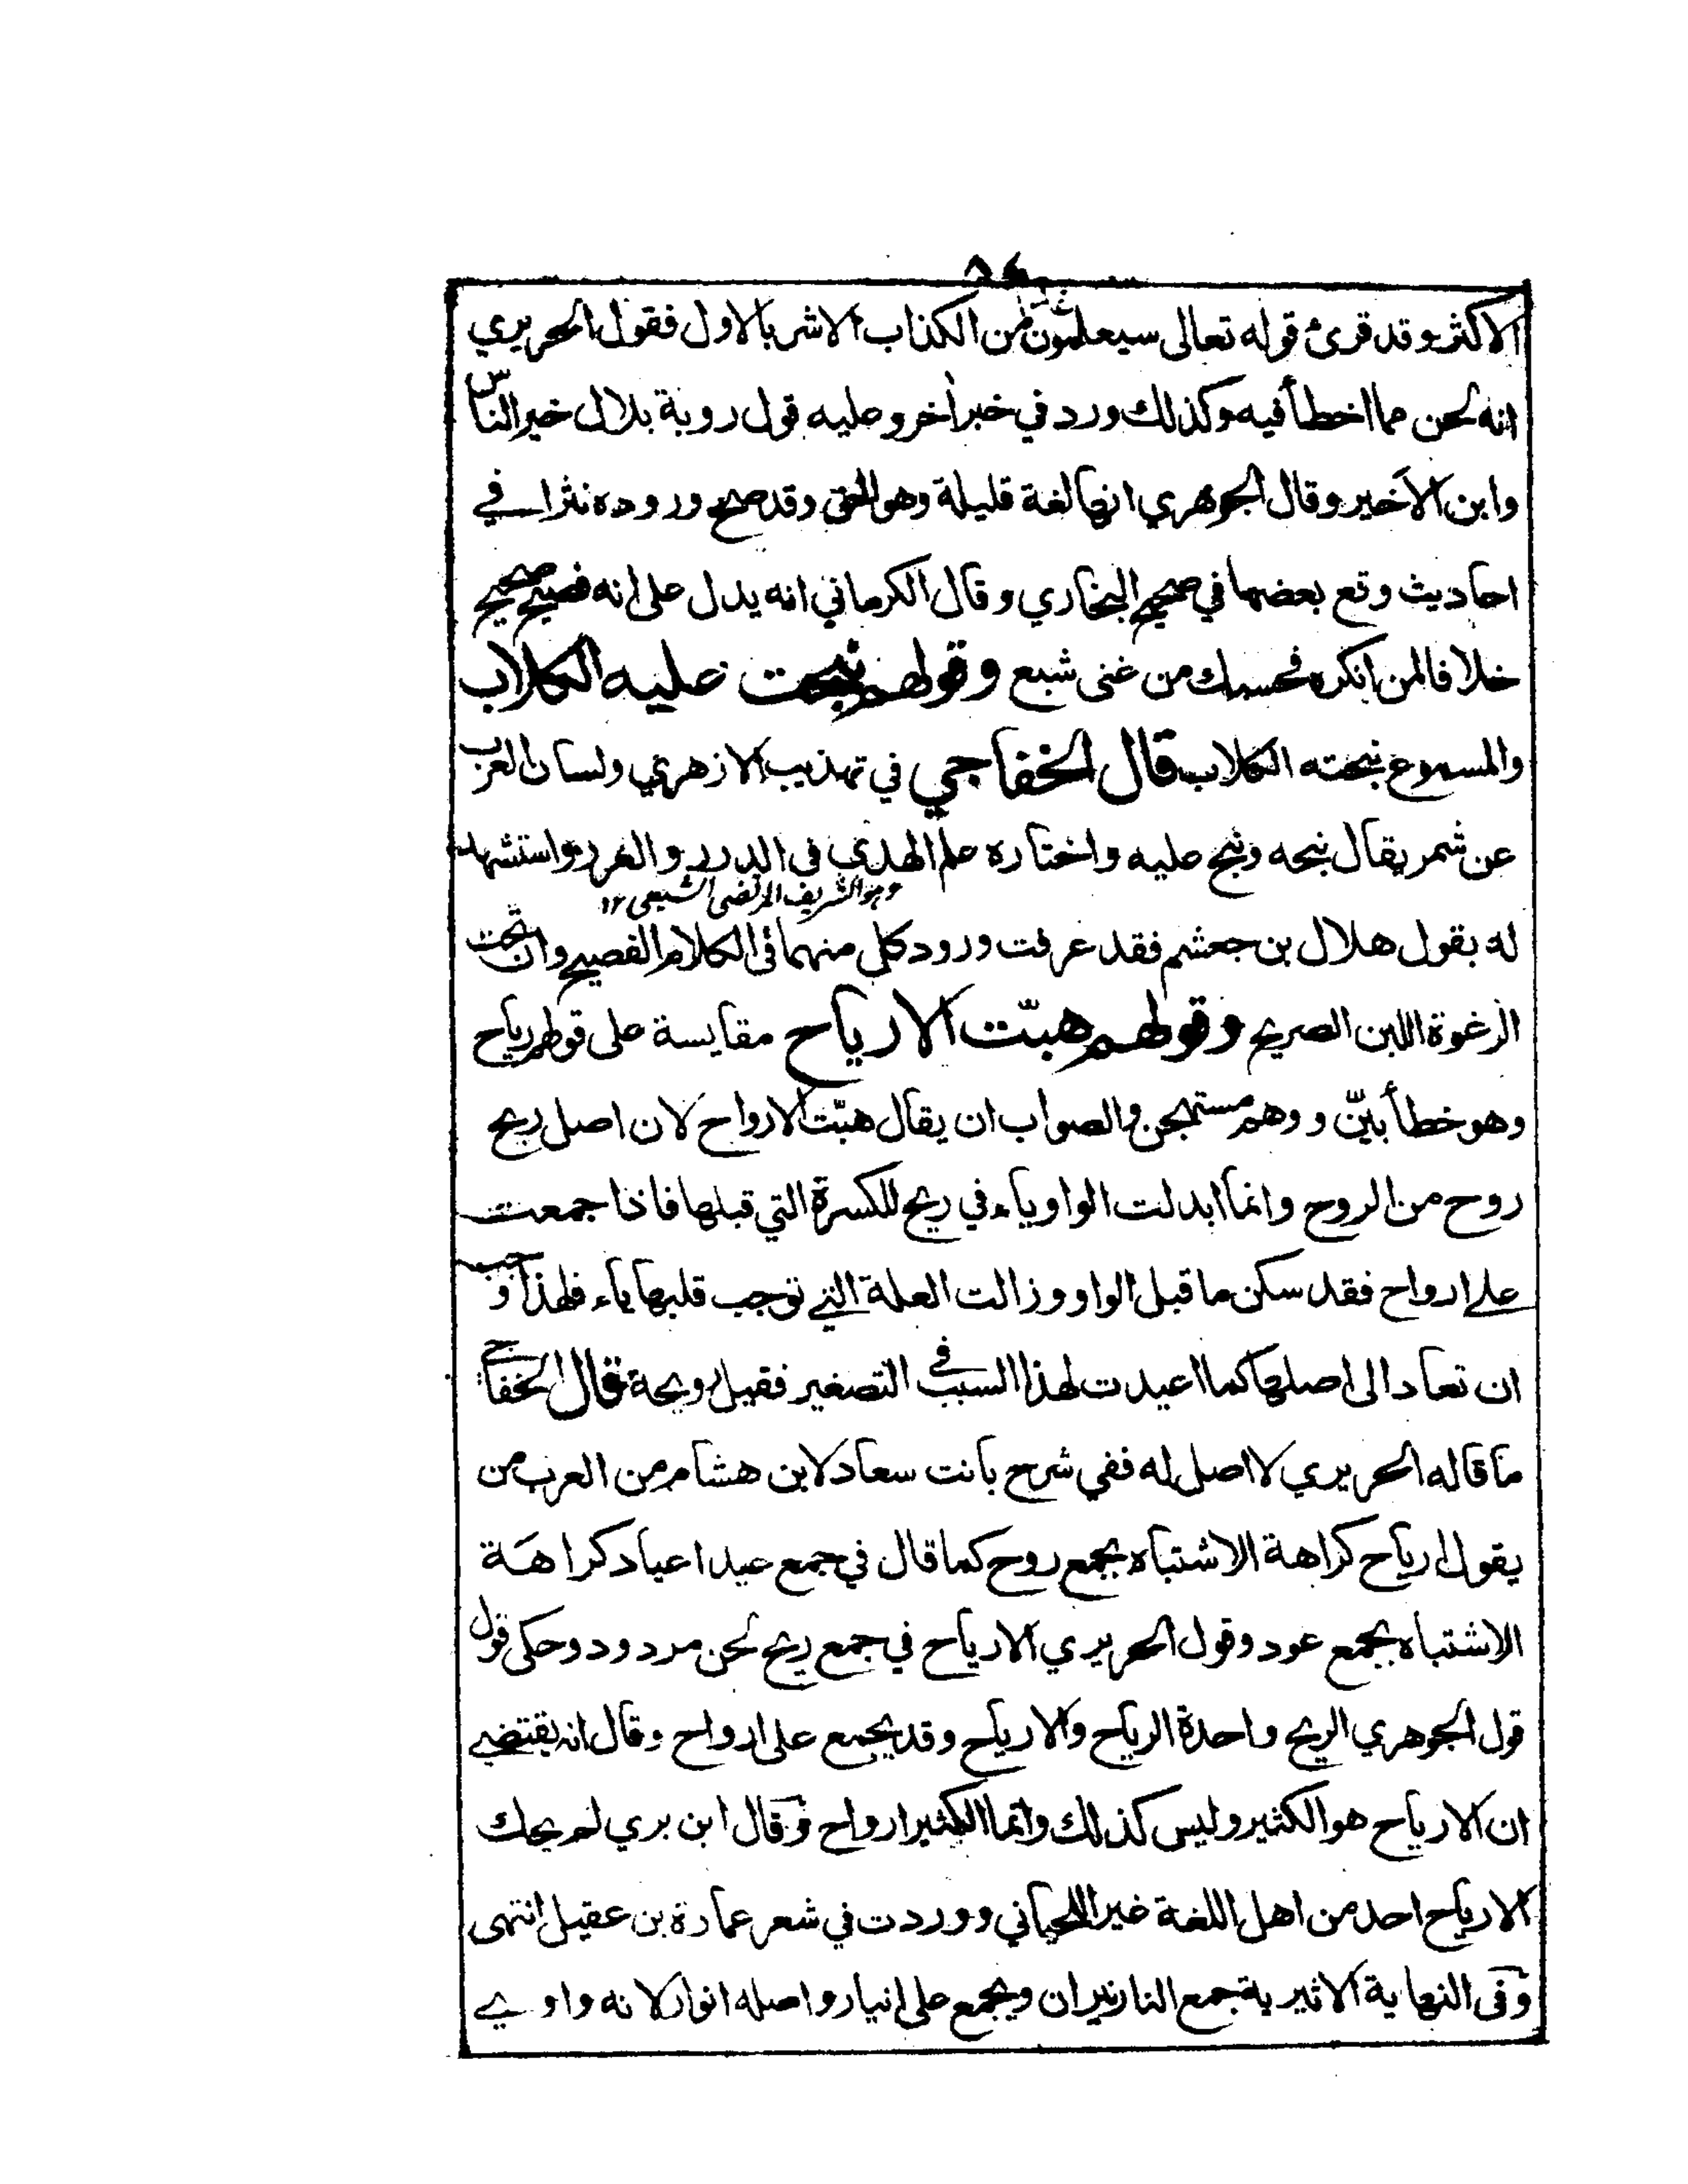 الاكثر وقد قرئ قوله تعالى سيعلمون من الكذاب الاشر بالاول فقول الحريري
انه لحن مما اخطأ فيه وكذلك ورد في خبر أخر وعليه قول روبة بلال خير الناس
وابن الأخير وقال الجوهري انها لغة قليلة وهو الحق وقد صح وروده نثرا في
احاديث وقع بعضها في صحيح البخاري وقال الكرماني انه يدل على انه فصيح صحيح
خلافا لمن انكره فحسبك من غنى شبع وقولهم نبحت عليه الكلاب
والمسموع نبحته الكلاب قال الخفاجي في تهذيب الازهري ولسان العرب
عن شمر يقال نبحه ونبح عليه واختاره علم الهدي في الدرر والغرر واستشهد
وهو الشريف المرتضى الشيعي ١٢
له بقول هلال بن جعشم فقد عرفت ورود كل منهما في الكلام الفصيح وان تحت
الرغوة اللبن الصريح وقولهم هبّت الارياح مقايسة على قولهم رياح
وهو خطأ بيّن ووهم مستهجن والصواب ان يقال هبّت الارواح لان اصل ريح
روح من الروح وانما ابدلت الواو ياء في ريح للكسرة التي قبلها فاذا جمعت
على ارواح فقد سكن ما قبل الواو وزالت العلة التي توجب قلبها ياء فلهذا وجب
ان تعاد الى اصلها كما اعيدت لهذا السبب في التصغير فقيل رويحة قال الخفاجي
ما قاله الحريري لا اصل له ففي شرح بانت سعاد لابن هشام من العرب من
يقول ارياح كراهة الاشتباه بجمع روح كما قال في جمع عيد اعياد كراهة
الاشتباه بجمع عود وقول الحريري الارياح في جمع ريح لحن مردود وحكى قول
قول الجوهري الريح واحدة الرياح والارياح وقد يجمع على ارواح وقال انه يقتضي
ان الارياح هو الكثير وليس كذلك وانما الكثير ارواح وقال ابن بري لم يحك
الارياح احد من اهل اللغة غير اللحياني ووردت في شعر عمارة بن عقيل انتهى
وفى النهاية الاثيرية جمع النار نيران ويجمع على انيار واصله انوار لانه واوي